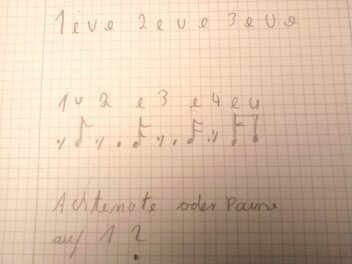 1 e v e 2 e v e 3 e v e
1 v 2 e 3 e 4 e u
Achtelnote oder Pause
auf 1 ?